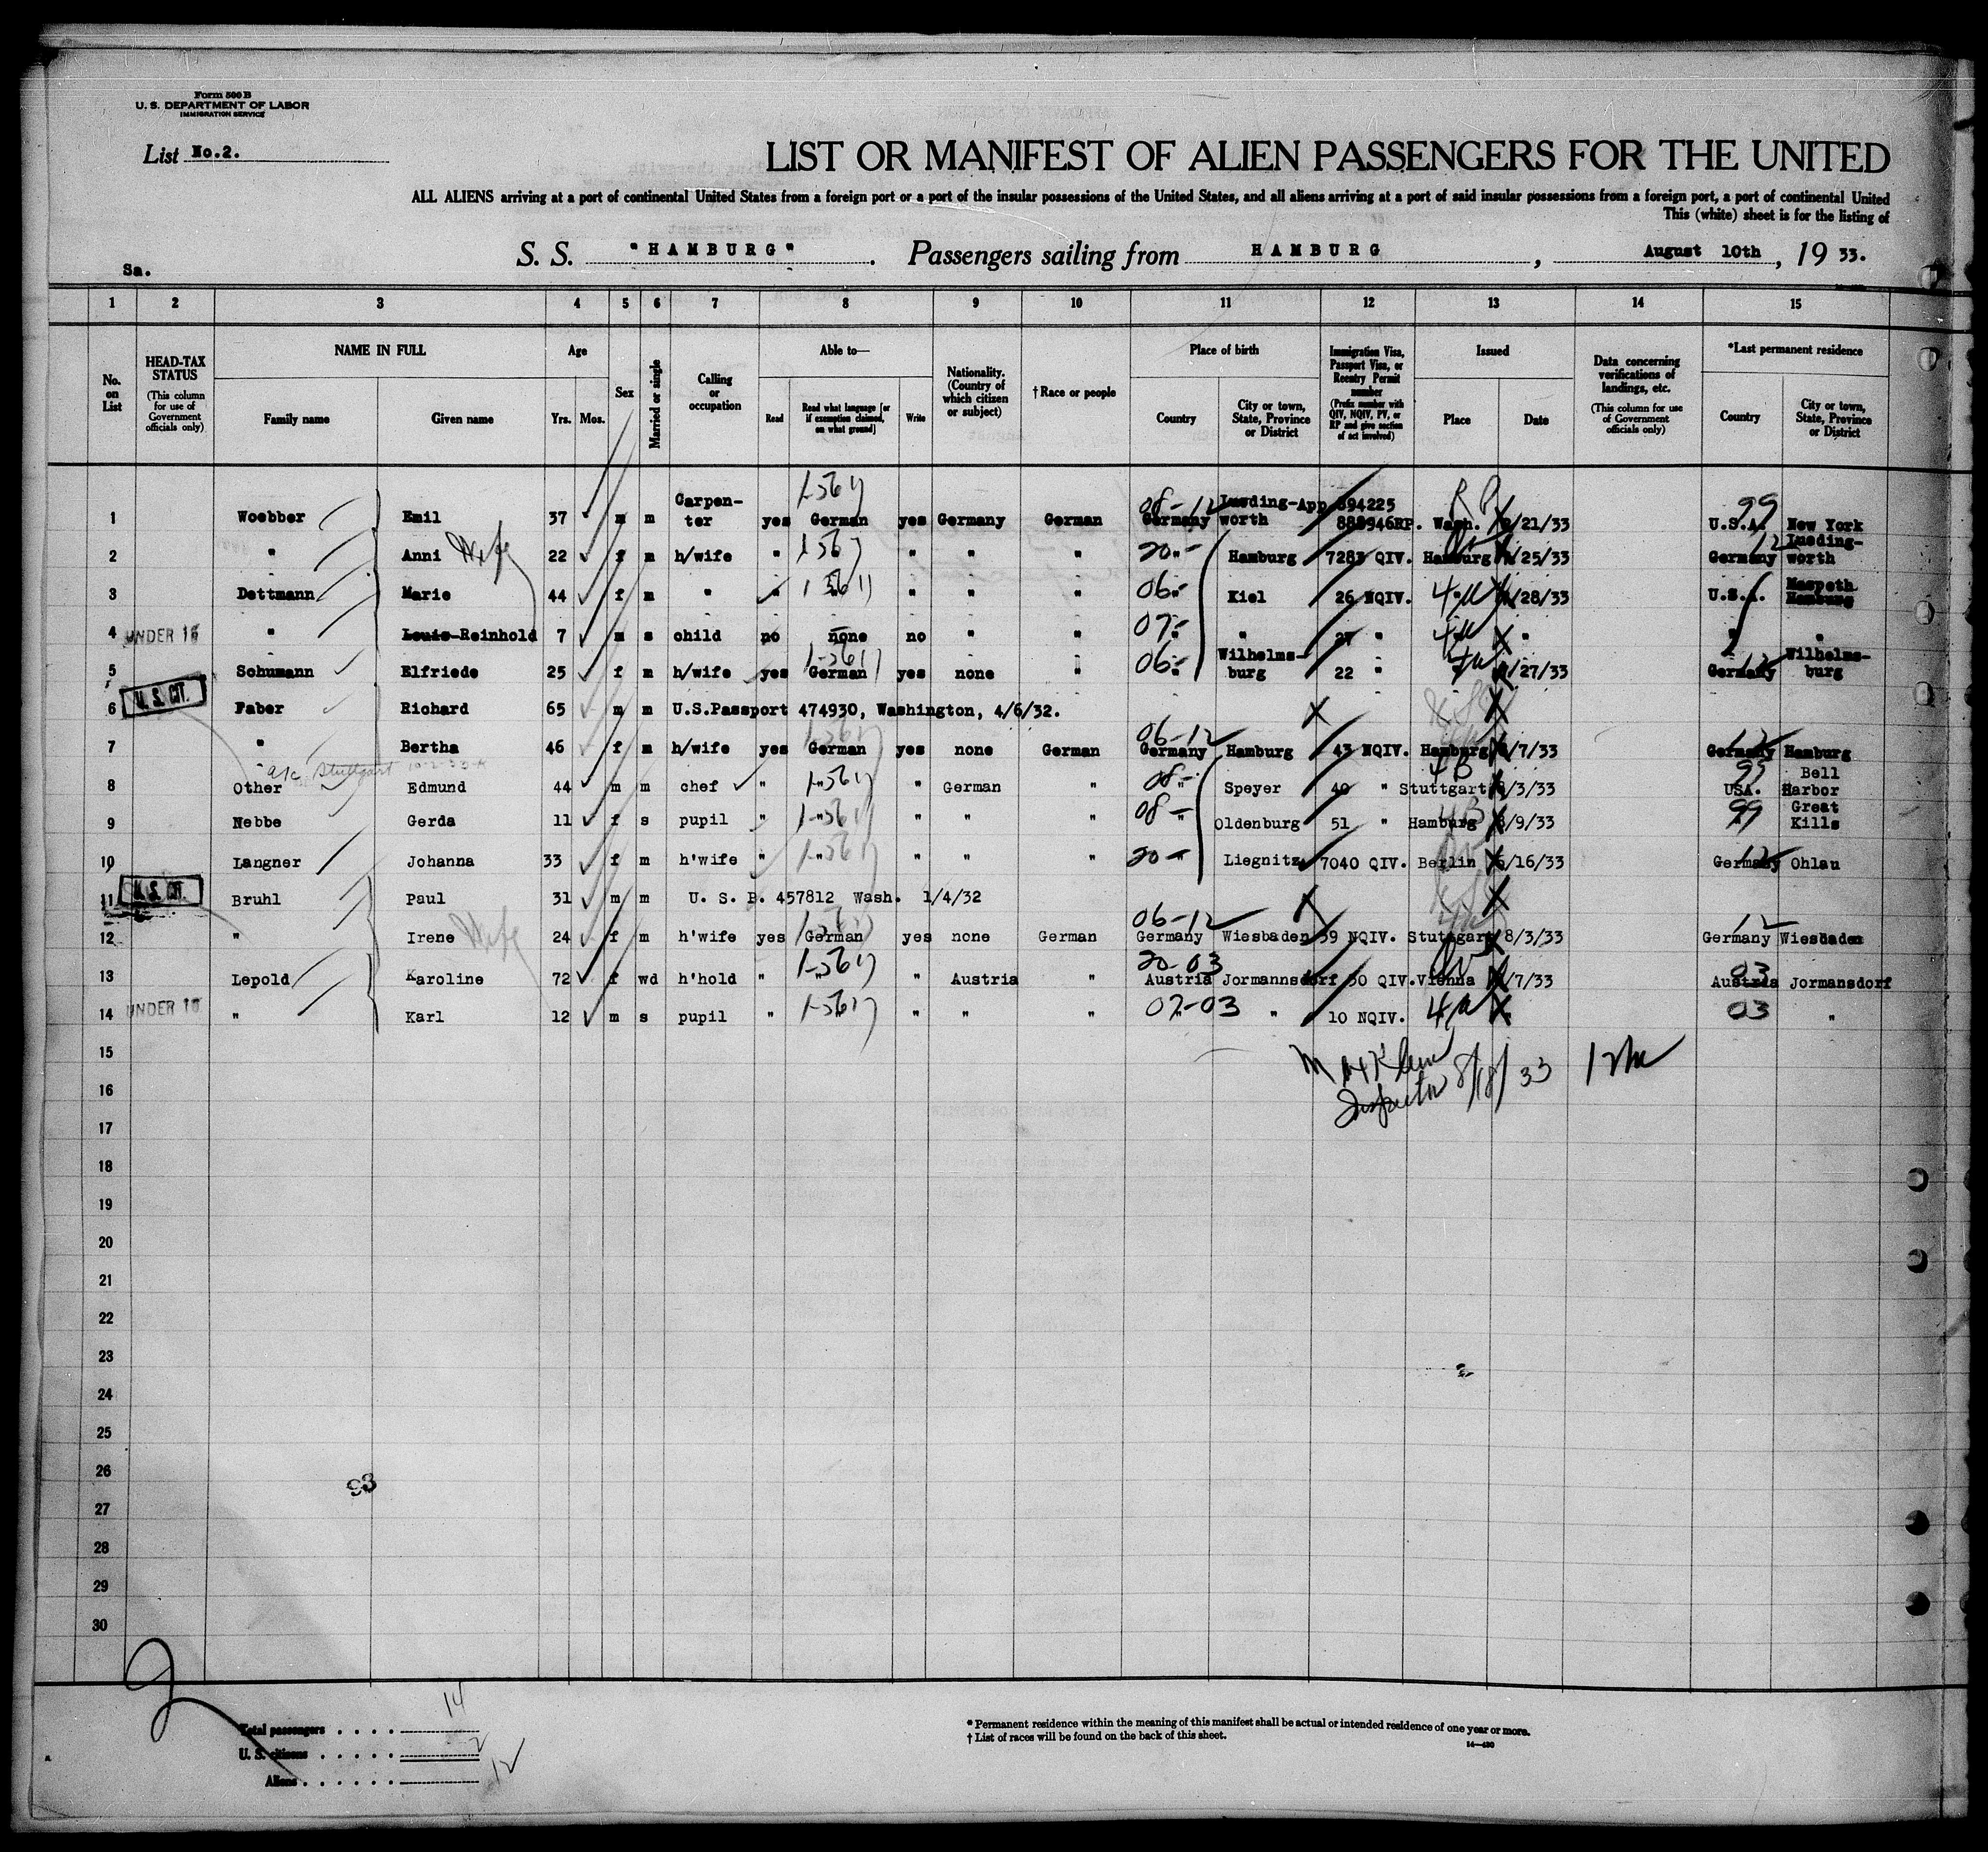 Form 500 B
U. S. DEPARTMENT OF LABOR
IMMIGRATION SERVICE
List No.2.
LIST OR MANIFEST OF ALIEN PASSENGERS FOR THE UNITED
ALL ALIENS arriving at a port of continental United States from a foreign port or a port of the insular possessions of the United States, and all aliens arriving at a port of said insular possessions from a foreign port, a port of continental United
This (white) sheet is for the listing of
Sa. S. S. "HAMBURG". Passengers sailing from HAMBURG, August 10th, 19 33.
1 2 3 4 5 6 7 8 9 10 11 12 13 14 15
No. on List
HEAD-TAX STATUS (This column for use of Government officials only)
NAME IN FULL Family name Given name
Age Yrs. Mos.
Sex
Married or single
Calling or occupation
Able to— Read Read what language [or if exemption claimed, on what ground] Write
Nationality. (Country of which citizen or subject)
† Race or people
Place of birth Country City or town, State, Province or District
Immigration Visa, Passport Visa, or Reentry Permit number (Prefix number with QIV, NQIV, PV, or RP and give section of act involved)
Issued Place Date
Data concerning verifications of landings, etc. (This column for use of Government officials only)
*Last permanent residence Country City or town, State, Province or District
1 Woebber Emil 37 m m Carpenter yes German yes Germany German 08-12 Germany worth 894225 RP. Wash. /21/33 99 U.S.A. New York
2 " Anni Wife 22 f m h/wife " " " " 20- " Hamburg 7283 QIV. Hamburg /25/33 12 Germany Lueding-worth
3 Dettmann Marie 44 f m " " " " " " 06- " Kiel 26 NQIV. /28/33 U.S.A. Maspeth Hamburg
4 UNDER 16 " Louis-Reinhold 7 m s child no none no " " 07- " " 27 " " " "
5 Schumann Elfriede 25 f m h/wife yes German yes none " 06- " Wilhelms-burg 22 " /27/33 12 Germany Wilhelms-burg
6 U. S. CIT. Faber Richard 65 m m U.S.Passport 474930, Washington, 4/6/32.
7 " Bertha 46 f m h/wife yes German yes none German 06-12 Germany Hamburg 43 NQIV. Hamburg /7/33 12 Germany Hamburg
a/c Stuttgart
8 Other Edmund 44 m m chef " " " German " 08- " Speyer 40 " Stuttgart /3/33 99 USA. Bell Harbor
9 Nebbe Gerda 11 f s pupil " " " " " 08- " Oldenburg 51 " Hamburg /9/33 99 " Great Kills
10 Langner Johanna 33 f m h'wife " " " " " 20- " Liegnitz 7040 QIV. Berlin /16/33 12 Germany Ohlau
11 U. S. CIT. Bruhl Paul 31 m m U. S. P. 457812 Wash. 1/4/32
12 " Irene Wife 24 f m h'wife yes German yes none German 06-12 Germany Wiesbaden 39 NQIV. Stuttgart 8/3/33 12 Germany Wiesbaden
13 Lepold Karoline 72 f wd h'hold " " " Austria " 20-03 Austria Jormannsdorf 30 QIV. Vienna /7/33 03 Austria Jormansdorf
14 UNDER 16 " Karl 12 m s pupil " " " " " 07-03 " " 10 NQIV. " " 03 "
15
16 Inspector 8/18/33
17
18
19
20
21
22
23
24
25
26
93
27
28
29
30
2
Total passengers . . . . 14
U. S. citizens . . . . . 2
Aliens . . . . . . 12
* Permanent residence within the meaning of this manifest shall be actual or intended residence of one year or more.
† List of races will be found on the back of this sheet.
14—430